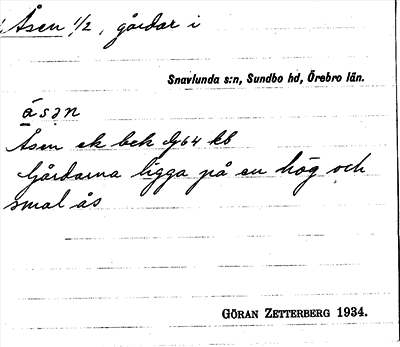 Åsen 1/2, gårdar i
Snavlunda s:n, Sundbo hd, Örebro län.
åsən
Åsen ek bek dG64 kb
Gårdarna ligga på en hög och
smal ås
GÖRAN ZETTERBERG 1934.